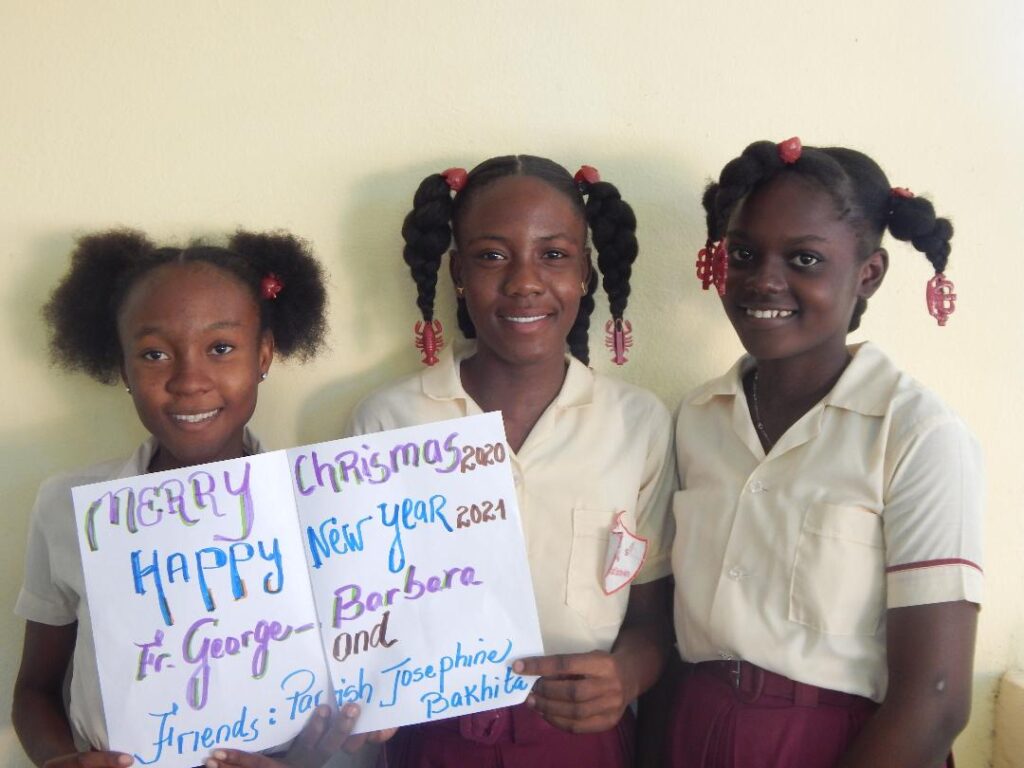 MERRY Chrismas 2020
HAPPY New year 2021
Fr. George - Barbara
and
Friends: Parish Josephine
Bakhita